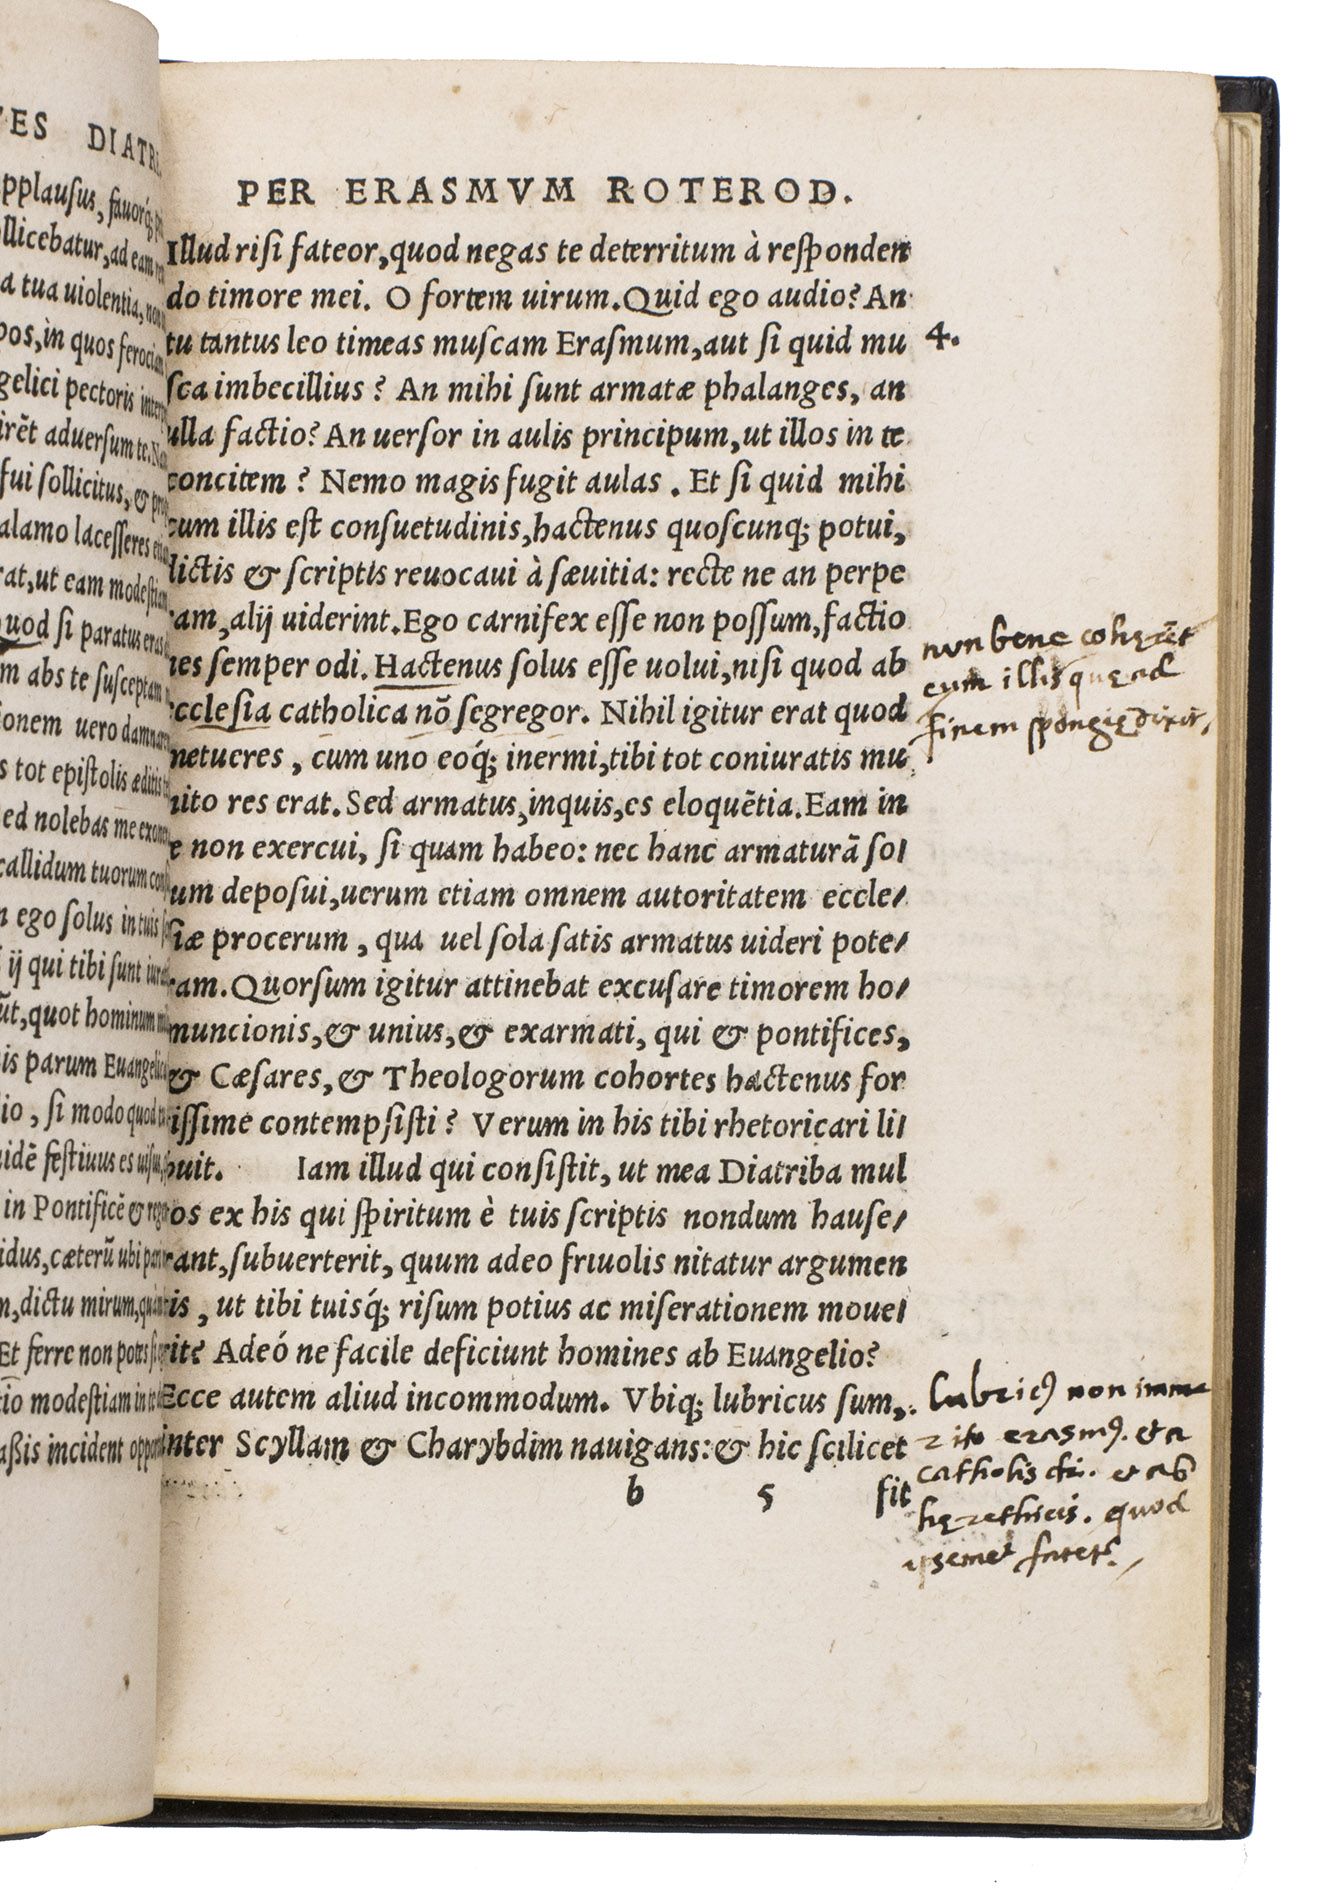 DIATRI
applausus, fauorq́;
ollicebatur, ad eam
a tua uiolentia, non
pos, in quos ferociam
gelici pectoris
irēt aduersum te.
fui sollicitus, &
alamo lacesseres
rat, ut eam modestiam
quod si paratus eras
m abs te susceptam
ionem uero damnare
s tot epistolis æditis
ed nolebas me
callidum tuorum
n ego solus in tuis
ij qui tibi sunt
ūt, quot hominum
is parum Euangelica
io, si modo quod
idē festiuus es
in Pontificē &
idus, cæterū ubi
m, dictu mirum,
Et ferre non potes
io modestiam in te
aßis incident
PER ERASMVM ROTEROD.
Illud risi fateor, quod negas te deterritum à responden
do timore mei. O fortem uirum. Quid ego audio? An
tu tantus leo timeas muscam Erasmum, aut si quid mu
4.
sca imbecillius? An mihi sunt armatæ phalanges, an
ulla factio? An uersor in aulis principum, ut illos in te
concitem? Nemo magis fugit aulas. Et si quid mihi
cum illis est consuetudinis, hactenus quoscunq; potui,
dictis & scriptis reuocaui à sæuitia: recte ne an perpe
ram, alij uiderint. Ego carnifex esse non possum, factio
nes semper odi. Hactenus solus esse uolui, nisi quod ab
ecclesia catholica nō segregor. Nihil igitur erat quod
metueres, cum uno eoq́; inermi, tibi tot coniuratis mu
nito res erat. Sed armatus, inquis, es eloquētia. Eam in
te non exercui, si quam habeo: nec hanc armaturā so/
lum deposui, uerum etiam omnem autoritatem eccle/
siæ procerum, qua uel sola satis armatus uideri pote/
ram. Quorsum igitur attinebat excusare timorem ho/
muncionis, & unius, & exarmati, qui & pontifices,
& Cæsares, & Theologorum cohortes hactenus for
tissime contempsisti? Verum in his tibi rhetoricari li/
buit. Iam illud qui consistit, ut mea Diatriba mul
tos ex his qui spiritum è tuis scriptis nondum hause/
rant, subuerterit, quum adeo friuolis nitatur argumen
tis, ut tibi tuisq́; risum potius ac miserationem moue/
rit? Adeó ne facile deficiunt homines ab Euangelio?
Ecce autem aliud incommodum. Vbiq; lubricus sum,
inter Scyllam & Charybdim nauigans: & hic scilicet
b 5 fit
non bene cohęrēt
cum illis quę ad
finem spongię dixit,
lubricꝰ non imme
rito erasmꝰ. et a
catholicis dr̄. et ab
hęrethicis. quod
ipsemet fatetr.